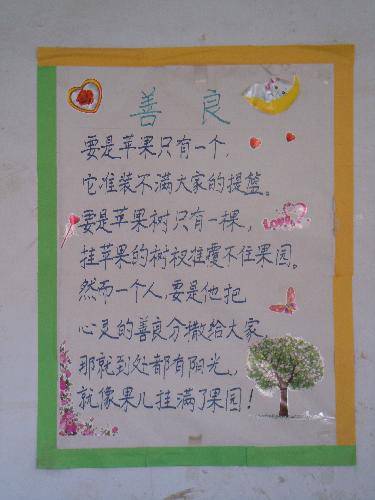 善良
要是苹果只有一个,
它准装不满大家的提篮。
要是苹果树只有一棵,
挂苹果的树杈准覆不住果园。
然而一个人,要是他把
心灵的善良分撒给大家,
那就到处都有阳光、
就像果儿挂满了果园!